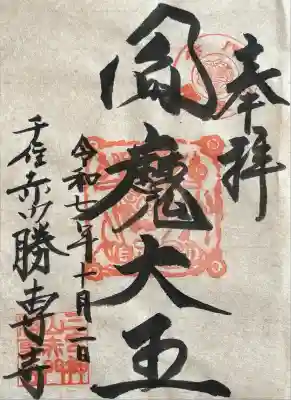 奉拝
閻魔大王
令和七年十月二日
千住赤门勝専寺